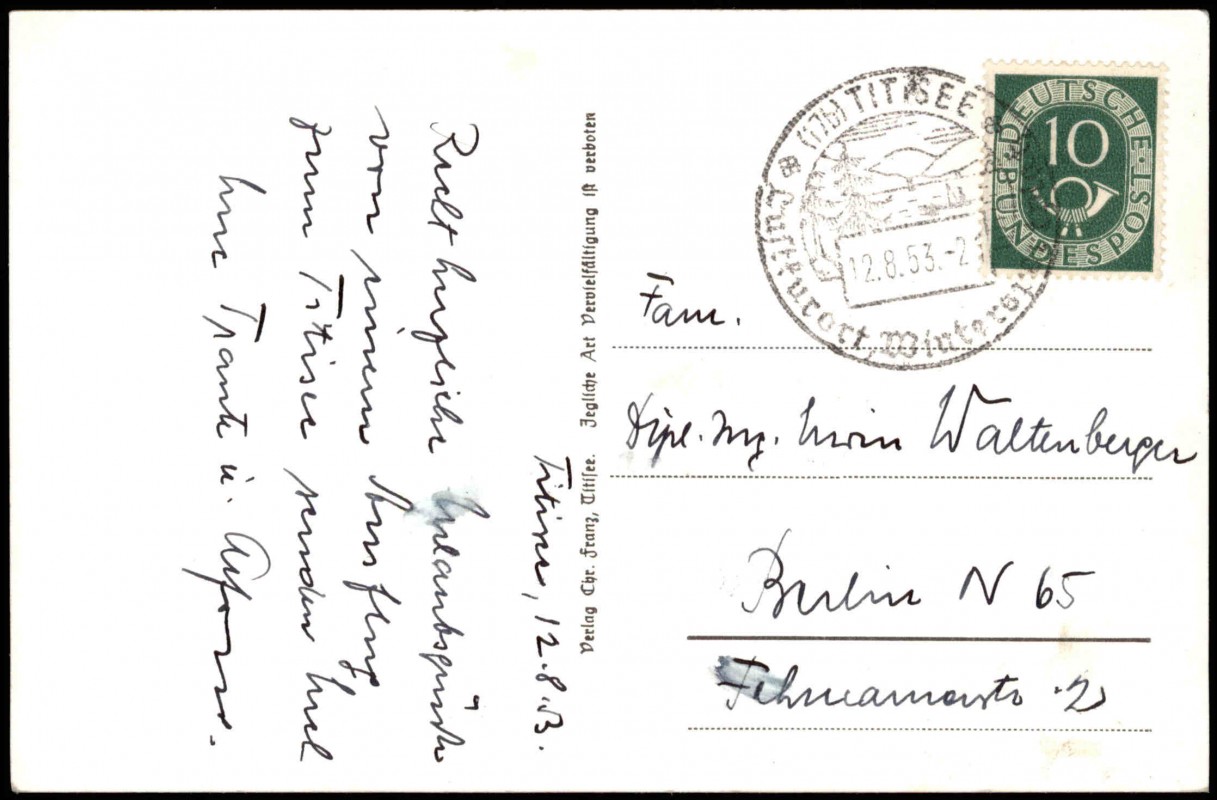 Titisee, 12.8.53.
Recht herzliche Urlaubsgrüße
von einem Ausflug
zum Titisee senden Euch
Eure Trante u.
Verlag Chr. Franz, Titisee. Jegliche Art Vervielfältigung ist verboten
(17b) TITISEE
12.8.53.-2
Luftkurort, Wintersp
DEUTSCHE BUNDESPOST
10
Fam.
Dipl.-Ing. Erwin Waltenberger
Berlin N 65
Fehmarnerstr. 2